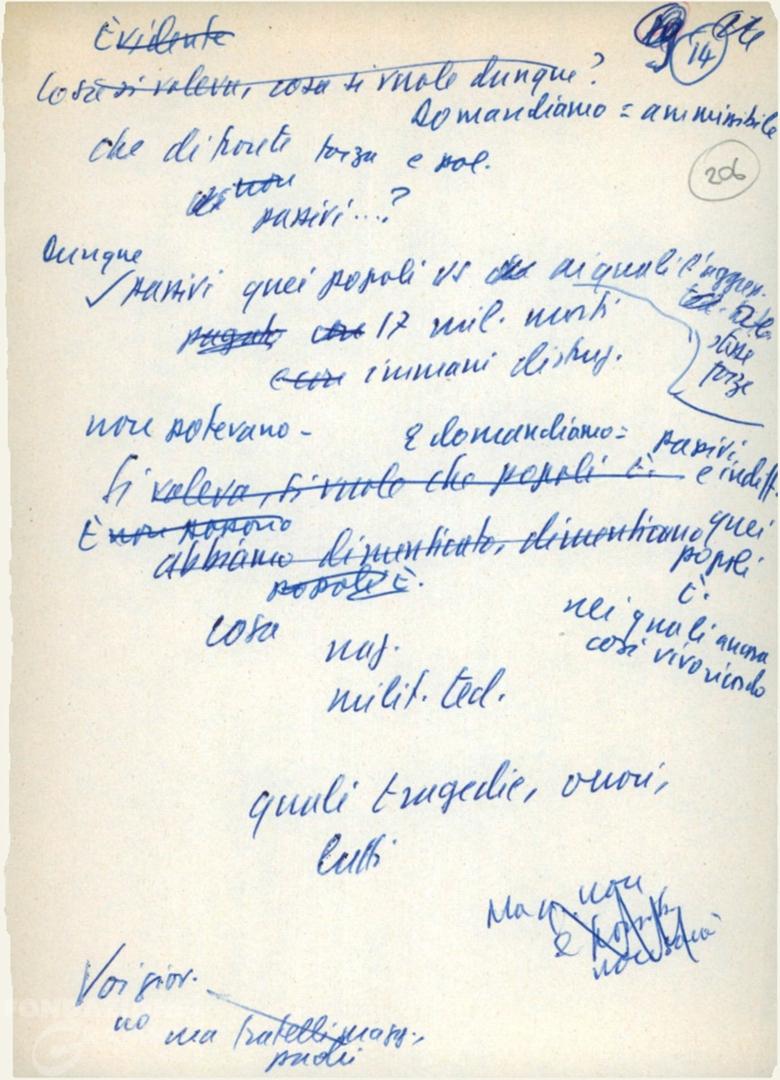 Evidente
14
Cosa si voleva, cosa si vuole dunque?
Domandiamo = ammissibile
206
che di fronte forza e pol.
non
passivi...?
Dunque
passivi quei popoli vs ai quali l'aggres.
pagato con 17 mil. morti
stesse
forze
e con immani distruz.
non potevano -
E domandiamo = passivi
e indiff.
Si voleva, si vuole che popoli è:
È non possono
abbiamo dimenticato, dimenticano quei
popoli
popoli è.
è.
nei quali ancora
così vivo ricordo
cosa
naz.
milit. ted.
quali tragedie, orrori,
lutti
Ma non
è
non
Voi giov.
no ma fratelli magg.,
padri